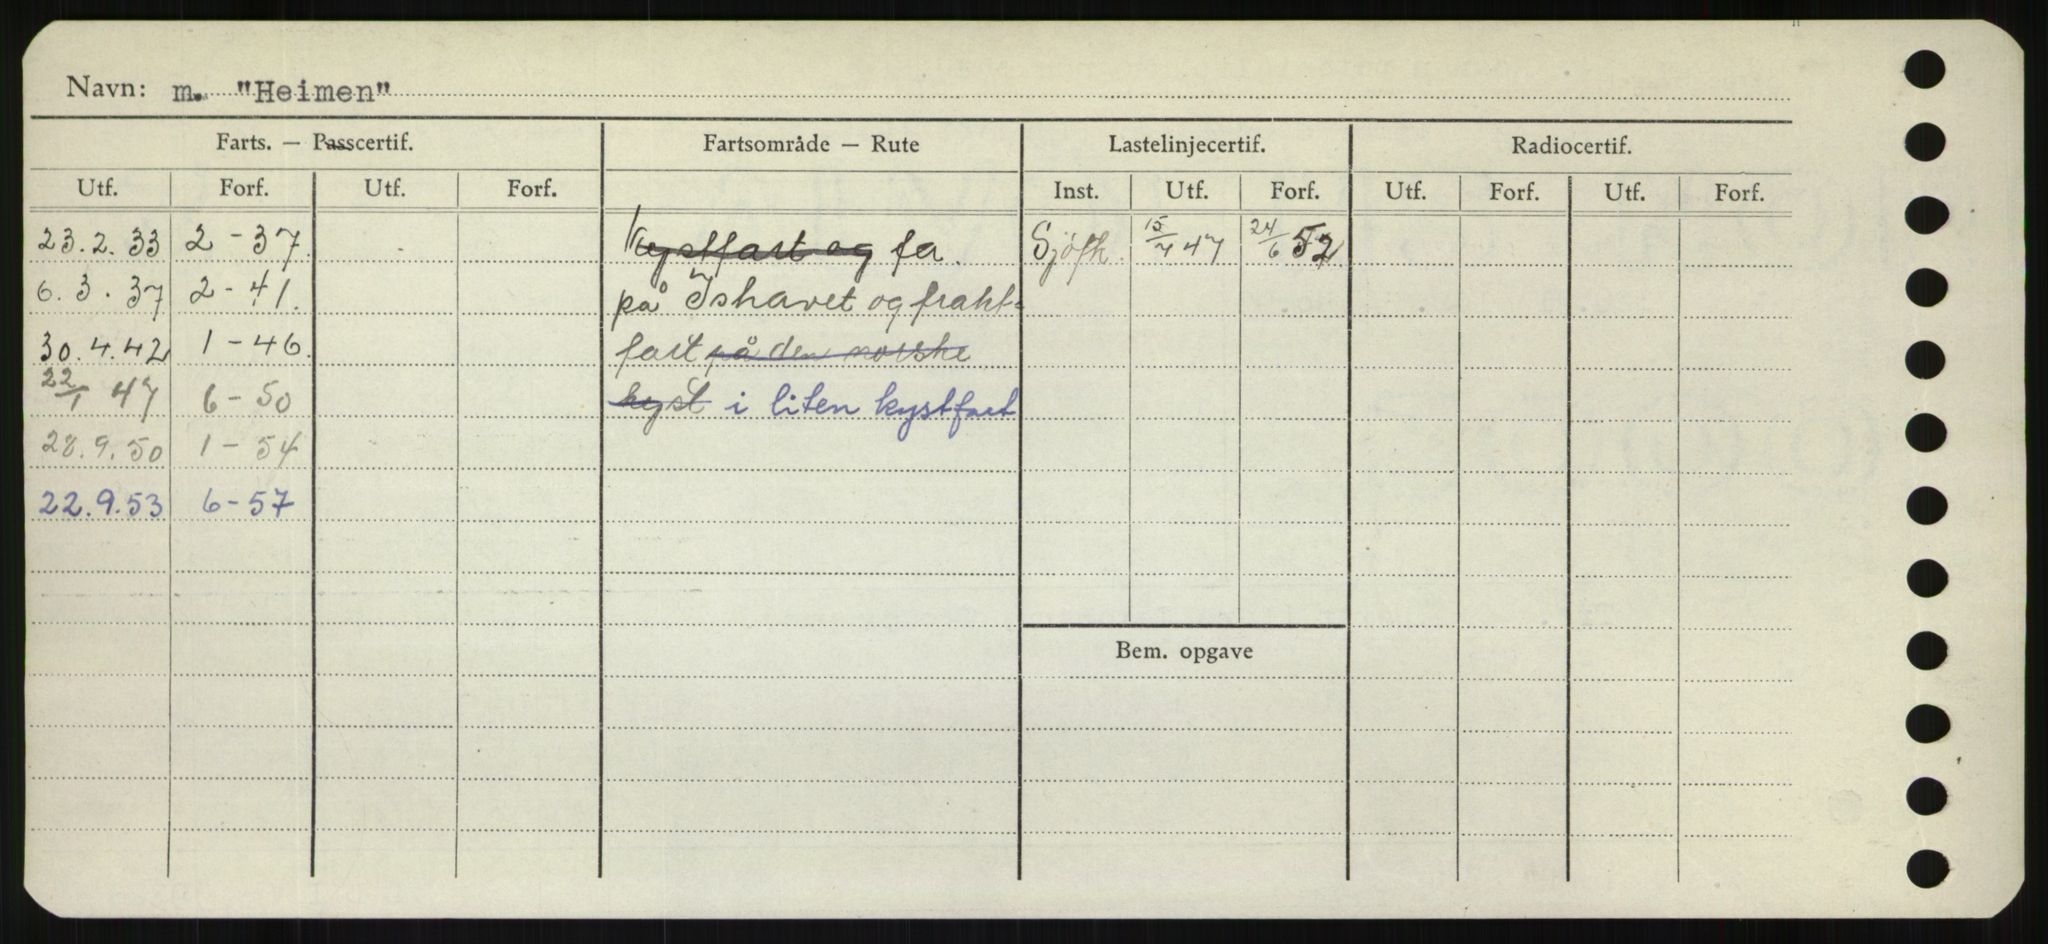 Navn: m. "Heimen"
Farts. — Passcertif. Fartsområde — Rute Lastelinjecertif. Radiocertif.
Utf. Forf. Utf. Forf. Inst. Utf. Forf. Utf. Forf. Utf. Forf.
23.2.33 2-37. Kystfart og fa. Sjöfk. 15/7 47 24/6 52
6.3.37 2-41. på Ishavet og frakt-
30.4.42 1-46. fart på den norske
22/1 47 6-50 kyst i liten kystfart
28.9.50 1-54
22.9.53 6-57
Bem. opgave